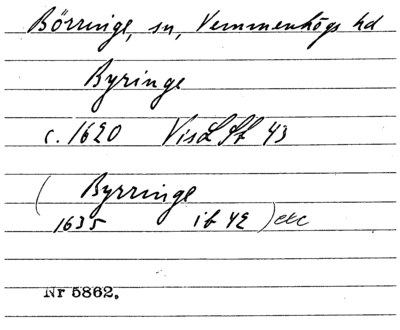 Börringe, sn, Vemmenhögs hd
Byringe
c. 1620 VisL St 43
( Byrringe
1635 ib 42 ) etc
Nr 5862.